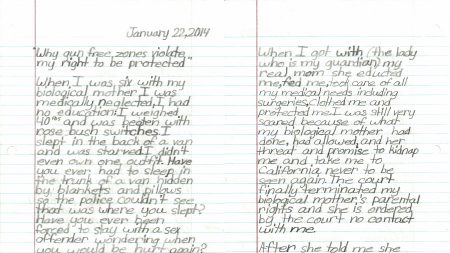 January 22, 2014
"Why gun free zones violate
my right to be protected"
When I was six with my
biological mother I was
medically neglected, I had
no education. I weighed
40 lbs and was beaten with
rose bush switches. I
slept in the back of a van
and was starved. I didn't
even own one outfit. Have
you ever had to sleep in
the trunk of a van hidden
by blankets and pillows
so the police couldn't see
that was where you slept?
Have you ever been
forced to stay with a sex
offender wondering when
you would be hurt again?
When I got with (the lady
who is my guardian) my
real mom she educted
me, fed me, took care of all
my medical needs including
surgeries, clothed me and
protected me. I was still very
scared because of what
my biological mother had
done, had allowed, and her
threat and promise to kidnap
me and take me to
California never to be
seen again. The court
finally terminated my
biological mother's parental
rights and she is ordered
by the court no contact
with me.
After she told me she